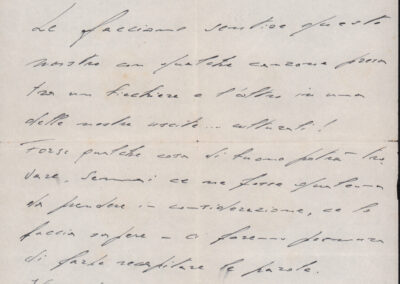 Le facciamo sentire questo
nostro con qualche canzone presa
tra un bicchiere e l'altro in una
delle nostre uscite... culturali!
Forse qualche cosa di buono potrà tro
vare. Semmai ce ne fosse qualcuna
da prendere in considerazione, ce lo
faccia sapere - ci faremo premura
di farle recapitare le parole.